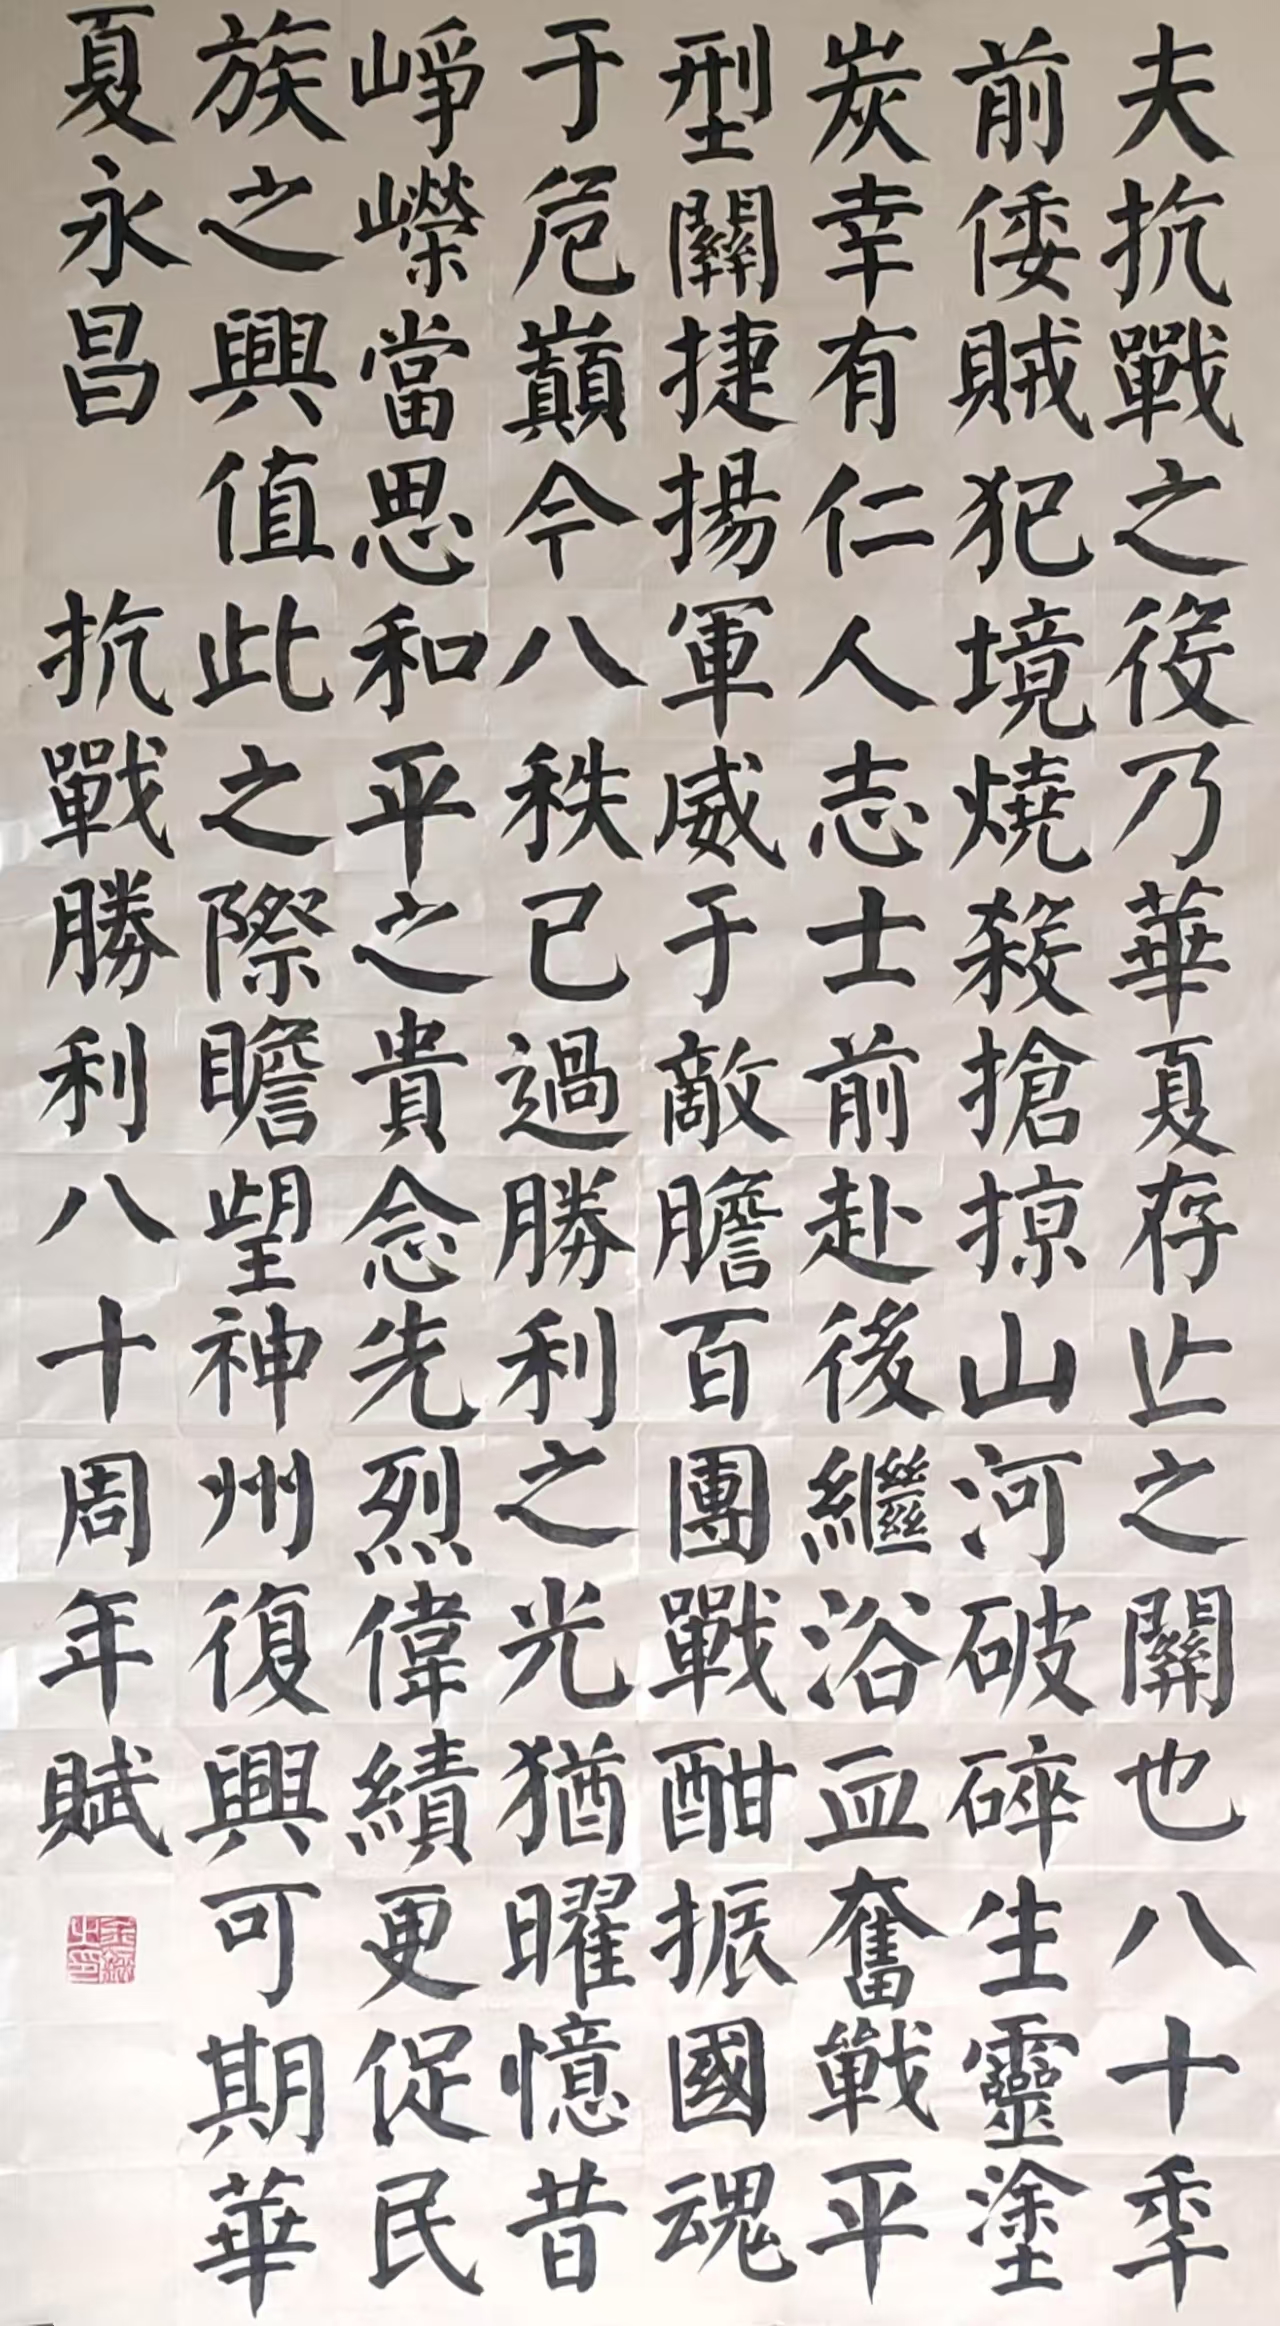 夫抗戰之役乃華夏存亡之關也八十季
前倭賊犯境燒殺搶掠山河破碎生靈塗
炭幸有仁人志士前赴後繼浴血奮戰平
型關捷揚軍威于敵膽百團戰酣振國魂
于危巔今八秩已過勝利之光猶曜憶昔
崢嶸當思和平之貴念先烈偉績更促民
族之興值此之際瞻望神州復興可期華
夏永昌 抗戰勝利八十周年賦